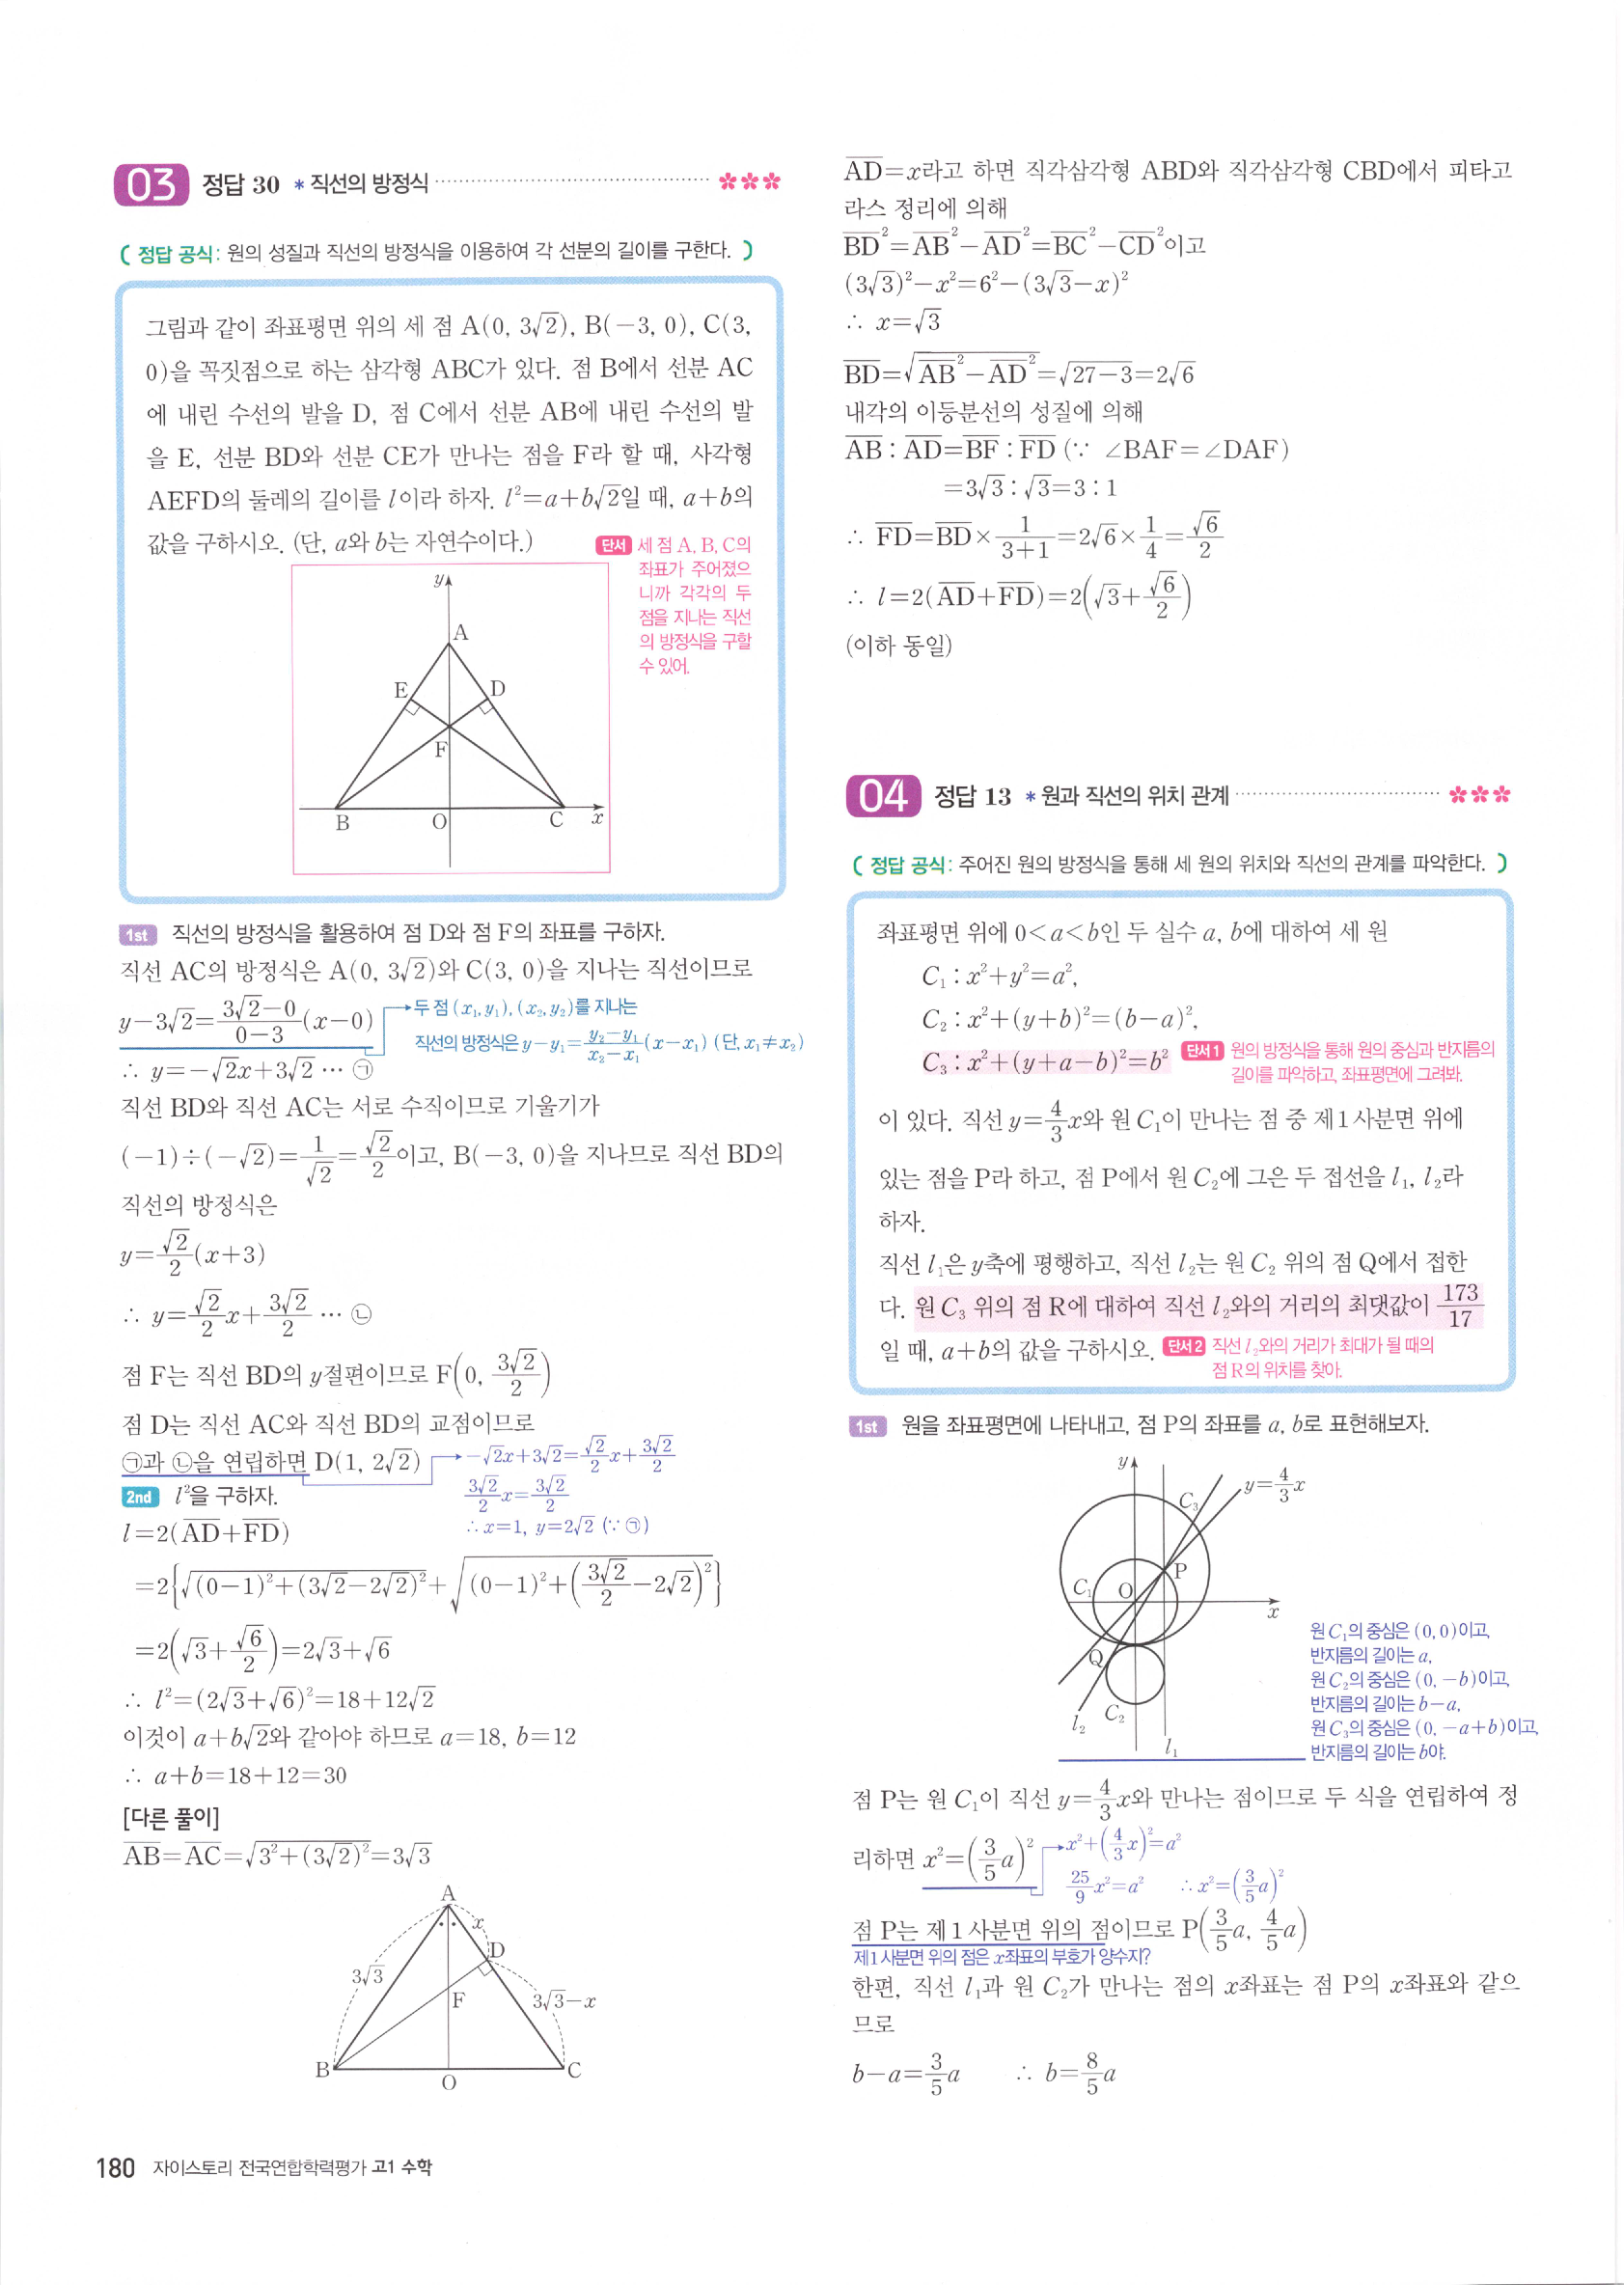 03 정답 30 *직선의 방정식
( 정답 공식: 원의 성질과 직선의 방정식을 이용하여 각 선분의 길이를 구한다. )
그림과 같이 좌표평면 위의 세 점 A(0, 3√2), B(−3, 0), C(3,
0)을 꼭짓점으로 하는 삼각형 ABC가 있다. 점 B에서 선분 AC
에 내린 수선의 발을 D, 점 C에서 선분 AB에 내린 수선의 발
을 E, 선분 BD와 선분 CE가 만나는 점을 F라 할 때, 사각형
AEFD의 둘레의 길이를 l이라 하자. l²=a+b√2일 때, a+b의
값을 구하시오. (단, a와 b는 자연수이다.)
단서 세 점 A, B, C의
좌표가 주어졌으
니까 각각의 두
점을 지나는 직선
의 방정식을 구할
수 있어.
y
A
E D
F
B O C x
1st 직선의 방정식을 활용하여 점 D와 점 F의 좌표를 구하자.
직선 AC의 방정식은 A(0, 3√2)와 C(3, 0)을 지나는 직선이므로
y−3√2=(3√2−0)/(0−3)(x−0)
→두 점 (x₁, y₁), (x₂, y₂)를 지나는
직선의 방정식은 y−y₁=(y₂−y₁)/(x₂−x₁)(x−x₁) (단, x₁≠x₂)
∴ y=−√2x+3√2 … ㉠
직선 BD와 직선 AC는 서로 수직이므로 기울기가
(−1)÷(−√2)=1/√2=√2/2이고, B(−3, 0)을 지나므로 직선 BD의
직선의 방정식은
y=√2/2(x+3)
∴ y=√2/2x+3√2/2 … ㉡
점 F는 직선 BD의 y절편이므로 F(0, 3√2/2)
점 D는 직선 AC와 직선 BD의 교점이므로
㉠과 ㉡을 연립하면 D(1, 2√2)
→−√2x+3√2=√2/2x+3√2/2
3√2/2x=3√2/2
∴ x=1, y=2√2 (∵ ㉠)
2nd l²을 구하자.
l=2(AD+FD)
=2{√((0−1)²+(3√2−2√2)²)+√((0−1)²+(3√2/2−2√2)²)}
=2(√3+√6/2)=2√3+√6
∴ l²=(2√3+√6)²=18+12√2
이것이 a+b√2와 같아야 하므로 a=18, b=12
∴ a+b=18+12=30
[다른 풀이]
AB=AC=√(3²+(3√2)²)=3√3
A
x
D
3√3
F
3√3−x
B
O
C
180 자이스토리 전국연합학력평가 고1 수학
AD=x라고 하면 직각삼각형 ABD와 직각삼각형 CBD에서 피타고
라스 정리에 의해
BD²=AB²−AD²=BC²−CD²이고
(3√3)²−x²=6²−(3√3−x)²
∴ x=√3
BD=√(AB²−AD²)=√(27−3)=2√6
내각의 이등분선의 성질에 의해
AB : AD=BF : FD (∵ ∠BAF=∠DAF)
=3√3 : √3=3 : 1
∴ FD=BD×1/(3+1)=2√6×1/4=√6/2
∴ l=2(AD+FD)=2(√3+√6/2)
(이하 동일)
04 정답 13 *원과 직선의 위치 관계
( 정답 공식: 주어진 원의 방정식을 통해 세 원의 위치와 직선의 관계를 파악한다. )
좌표평면 위에 0<a<b인 두 실수 a, b에 대하여 세 원
C₁ : x²+y²=a²,
C₂ : x²+(y+b)²=(b−a)²,
C₃ : x²+(y+a−b)²=b²
단서1 원의 방정식을 통해 원의 중심과 반지름의
길이를 파악하고, 좌표평면에 그려봐.
이 있다. 직선 y=4/3x와 원 C₁이 만나는 점 중 제1사분면 위에
있는 점을 P라 하고, 점 P에서 원 C₂에 그은 두 접선을 l₁, l₂라
하자.
직선 l₁은 y축에 평행하고, 직선 l₂는 원 C₂ 위의 점 Q에서 접한
다. 원 C₃ 위의 점 R에 대하여 직선 l₂와의 거리의 최댓값이 173/17
일 때, a+b의 값을 구하시오. 단서2 직선 l₂와의 거리가 최대가 될 때의
점 R의 위치를 찾아.
1st 원을 좌표평면에 나타내고, 점 P의 좌표를 a, b로 표현해보자.
y
C₃
y=4/3x
P
C₁ O
x
Q
C₂
l₂
l₁
원 C₁의 중심은 (0, 0)이고,
반지름의 길이는 a,
원 C₂의 중심은 (0, −b)이고,
반지름의 길이는 b−a,
원 C₃의 중심은 (0, −a+b)이고,
반지름의 길이는 b야.
점 P는 원 C₁이 직선 y=4/3x와 만나는 점이므로 두 식을 연립하여 정
리하면 x²=(3/5a)²
→x²+(4/3x)²=a²
25/9x²=a² ∴ x²=(3/5a)²
점 P는 제1사분면 위의 점이므로 P(3/5a, 4/5a)
제1사분면 위의 점은 x좌표의 부호가 양수지?
한편, 직선 l₁과 원 C₂가 만나는 점의 x좌표는 점 P의 x좌표와 같으
므로
b−a=3/5a ∴ b=8/5a